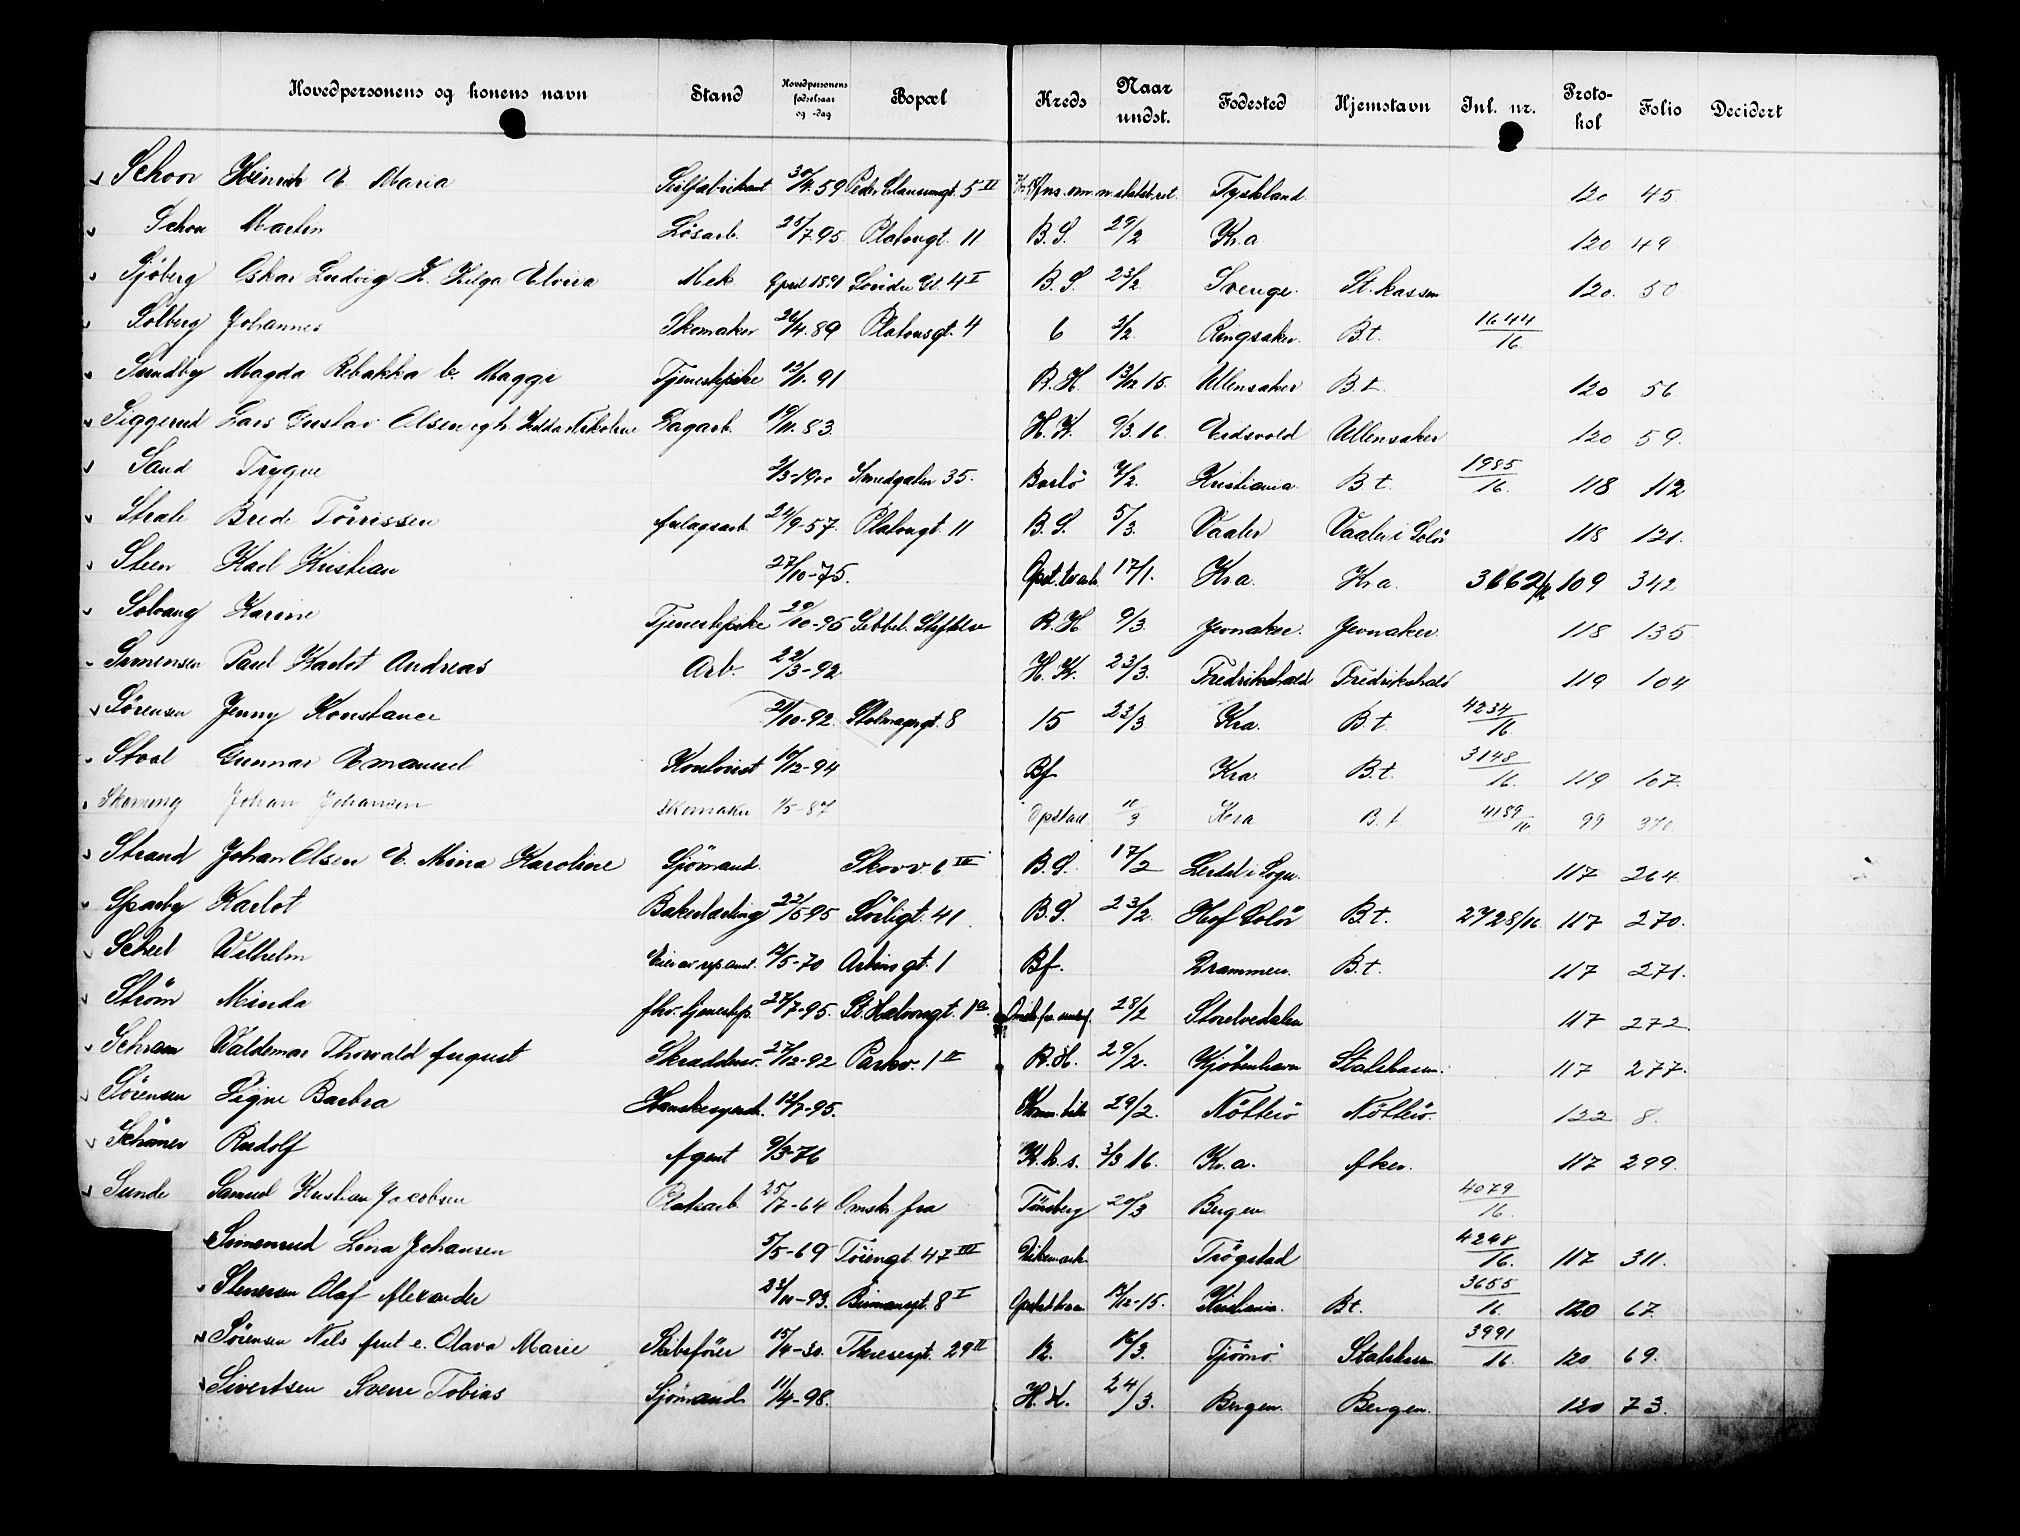 Hovedpersonens og konens navn Stand Hovedpersonens fødselsaar og -dag Bopæl Kreds Naar undst. Fødested Hjemstavn Jnl. nr. Protokol Folio Decidert
Schoor Heinrich E. Maria 59 5 II Tyskland 120 45
Schou Martin Løsarb. 7.95 Platousgt. 11 B.S. 29/2 Kr.a 120 49
Sjöberg Oskar Ludvig H. Helga Elvira Mek April 1891 4 I B.S. 23/2 Sverige St. kassen 120 50
Solberg Johannes Skomaker 26/4.89 Platousgt. 4 6 3/2 Ringsaker B.t. 1644/16 
Sundby Magda Rebakka Tjenestepike 91 R.H. 13/12 15. Ullensaker B.t. 120 56
Siggerud Lars Gustav Olsen Sagarb. 83. H.K. 9/3.16. Eidsvold Ullensaker 120 59.
Sand Trygve 3-1900 Smedgaten 35. Kristiania B.t. 1985/16. 118 112
Brede Tørrissen anlægsarb. 24/9-57. Platousgt. 11 B.S. 5/3. Vaaler Vaaler i Solør 118 121.
Steen Karl Kristian 27/10-75. 17/1. Kr.a Kr.a. 3662/16 109 342
Solvang Karine Tjenestepike 29/10-95 Stiftelse R.H. 9/3. Jevnaker. Jevnaker. 118 135
Simensen Paul Karlot Andreas Arb. 22/3-92 H.K. 23/3. Fredrikshald Fredrikshald 119 104
Sørensen Jenny Konstance 10-92. 8 15 23/3 Kra. B.t. 4234/16.
Gunnar Emanuel Kontorist 10/12-94 Bf. Kra B.t. 3148/16. 119 107.
Johan Johansen skomaker 5-87 Opstad. 10/3 Kra B.t 4189/16 99 370
Strand Johan Olsen E. Mina Karoline Sjömand. Skovv. 6 III B.S. 17/2 117 264.
Sparby Karlot Bakerlærling 22/5-95 Sørligt. 41. B.S. 23/2. Hof Solør B.t. 2728/16. 117 270.
Scheel Wilhelm 5-70 Arbinsgt. 1 Bf. Drammen. B.t. 117 271.
Strøm Minda fhv. tjenestep. 27/7-95. St. Halvorsgt. 1a. 28/2 Storelvedalen 117 272
Schram Waldemar Thorvald August Skrædder 27/12-92 Parkv. 1 II R.H. 29/2. Kjøbenhavn Statskassen. 117 277.
Sørensen Signe Barbra 12/7-95. 29/2. Nötterö Nötterö. 122 8.
Rudolf Agent 9/3-76 K.k.s. 3/3 16. Kr.a. Aker. 117 299.
Sunde Samuel Kristian Jacobsen 25/7-64 Omstr. fra Tönsberg 20/3 Bergen 4079/16.
Simensrud Lina Johansen 5/5-69 Töiengt. 47 III Trögstad 4248/16. 117 311.
Stenersen Olaf Alexander 93. 8 I 15. Kristiania. B.t. 3655/16 120 67.
Sørensen Nils Arnt e. Olava Marie Skibsfører 15/4-30. Theresesgt. 29 II 12. 16/3. Tjömö Statskassen 3991/16. 120 69.
Sivertsen Sverre Tobias Sjömand. 11/4-98. H.K. 24/3. Bergen. Bergen. 120 73.